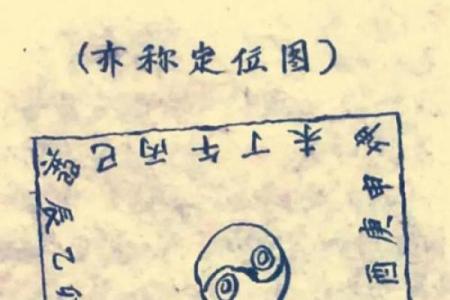 (亦称定位图)
巽巳丙午丁未
辰
乙
卯
申
庚
酉